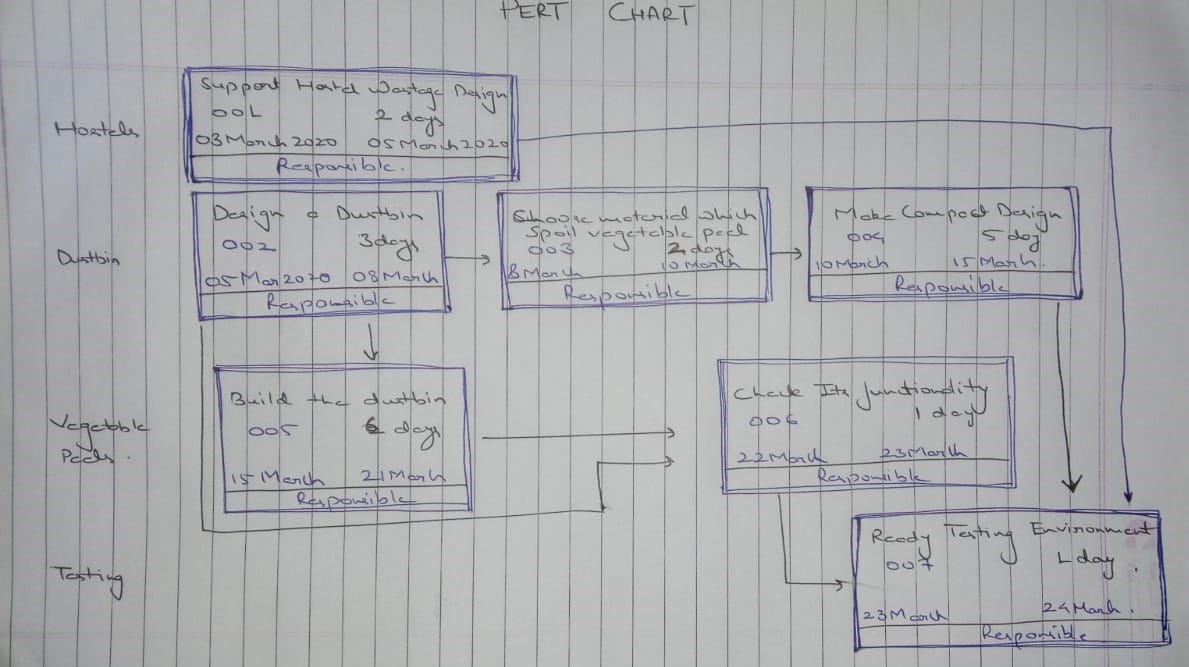 PERT CHART
Hostels
Support Hostel Wastage Design
001 2 days
03 March 2020 05 March 2020
Responsible.
Dustbin
Design a Dustbin
002 3 days
05 Mar 2020 08 March
Responsible
Choose material which
Spoil vegetable peel
003 2 days
8 March 10 March
Responsible
Make Compost Design
004 5 day
10 March 15 March.
Responsible
Vegetable
Peels.
Build the dustbin
005 6 days
15 March 21 March
Responsible
Check Its functionality
006 1 day
22 March 23 March
Responsible
Testing
Ready Testing Environment
007 1 day.
23 March 24 March.
Responsible